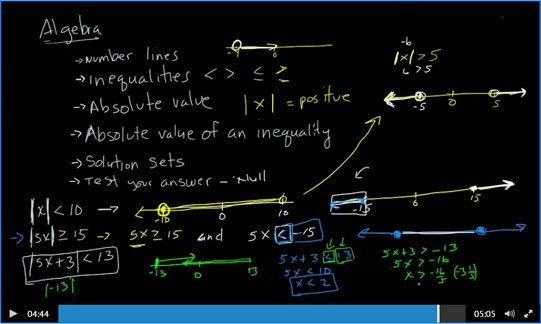 Algebra
→ Number lines
→ Inequalities < > ≤ ≥
→ Absolute value |x| = positive
→ Absolute value of an inequality
→ Solution sets
→ Test your answer
-6
|x| > 5
6 > 5
-5 0 5
|x| < 10 →
-10 0 10
→ |5x| ≥ 15 → 5x ≥ 15 and 5x < -15
-15 0 15
|5x+3| < 13
|-13|
-13 0 13
5x+3 < 13
5x < 10
x < 2
5x+3 > -13
5x > -16
x > -16/5 (-3 1/5)
04:44
05:05